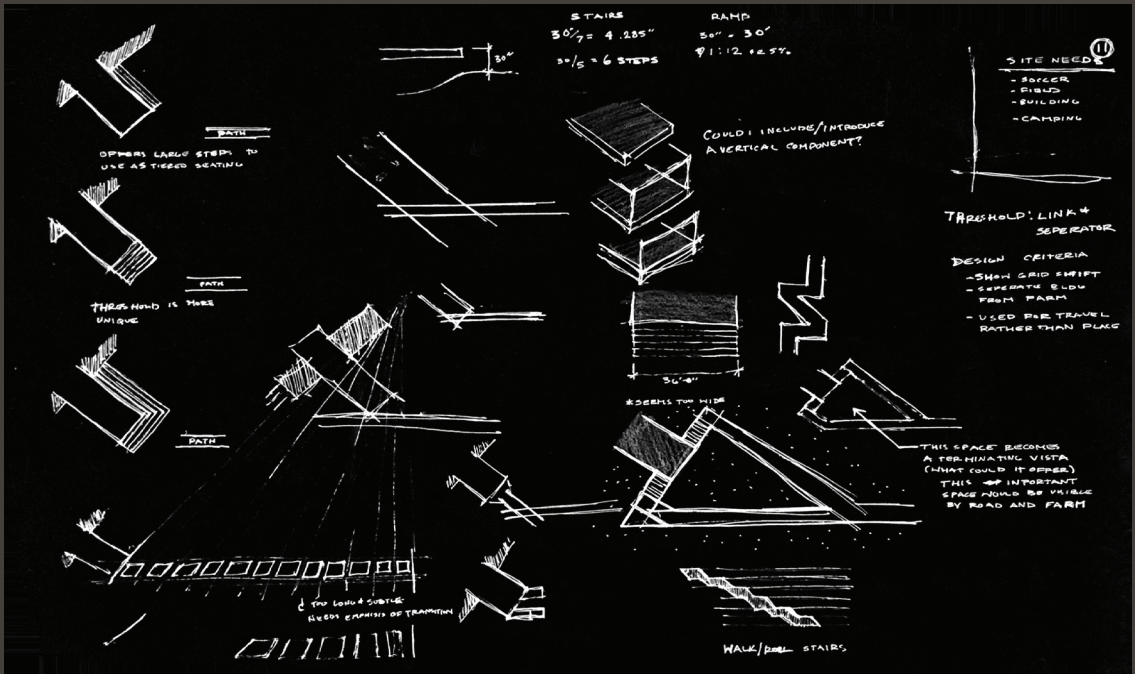 STAIRS
30"/7 = 4.285"
30/5 = 6 STEPS
RAMP
30" = 30'
1:12 OR 5%
30"
11
SITE NEEDS
- SOCCER
- FIELD
- BUILDING
- CAMPING
PATH
OFFERS LARGE STEPS TO
USE AS TIERED SEATING
COULD I INCLUDE/INTRODUCE
A VERTICAL COMPONENT?
THRESHOLD: LINK &
SEPERATOR
DESIGN CRITERIA
- SHOW GRID SHIFT
- SEPERATE BLDG
FROM FARM
- USED FOR TRAVEL
RATHER THAN PLACE
PATH
THRESHOLD IS MORE
UNIQUE
36'-0"
*SEEMS TOO WIDE
PATH
THIS SPACE BECOMES
A TERMINATING VISTA
(WHAT COULD IT OFFER)
THIS IMPORTANT
SPACE WOULD BE VISIBLE
BY ROAD AND FARM
TOO LONG & SUBTLE
NEEDS EMPHISIS OF TRANSITION
WALK/ STAIRS